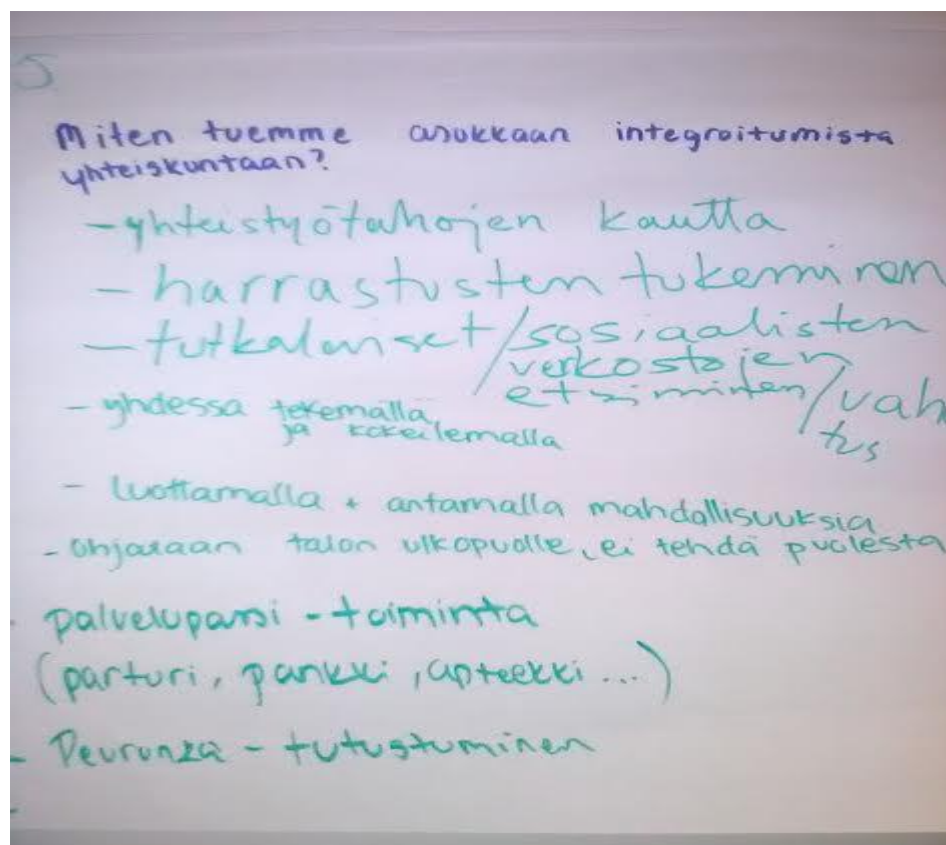 5
Miten tuemme asukkaan integroitumista
yhteiskuntaan?
- yhteistyötahojen kautta
- harrastusten tukeminen
- tutkalmiset/sosiaalisten
verkostojen
etsiminen/vah
tus
- yhdessä tekemällä
ja kokeilemalla
- luottamalla + antamalla mahdollisuuksia
- Ohjataan talon ulkopuolle, ei tehdä puolesta
- palveluparsi - toiminta
(parturi, pankki, apteekki ...)
- Peurunka - tutustuminen
-